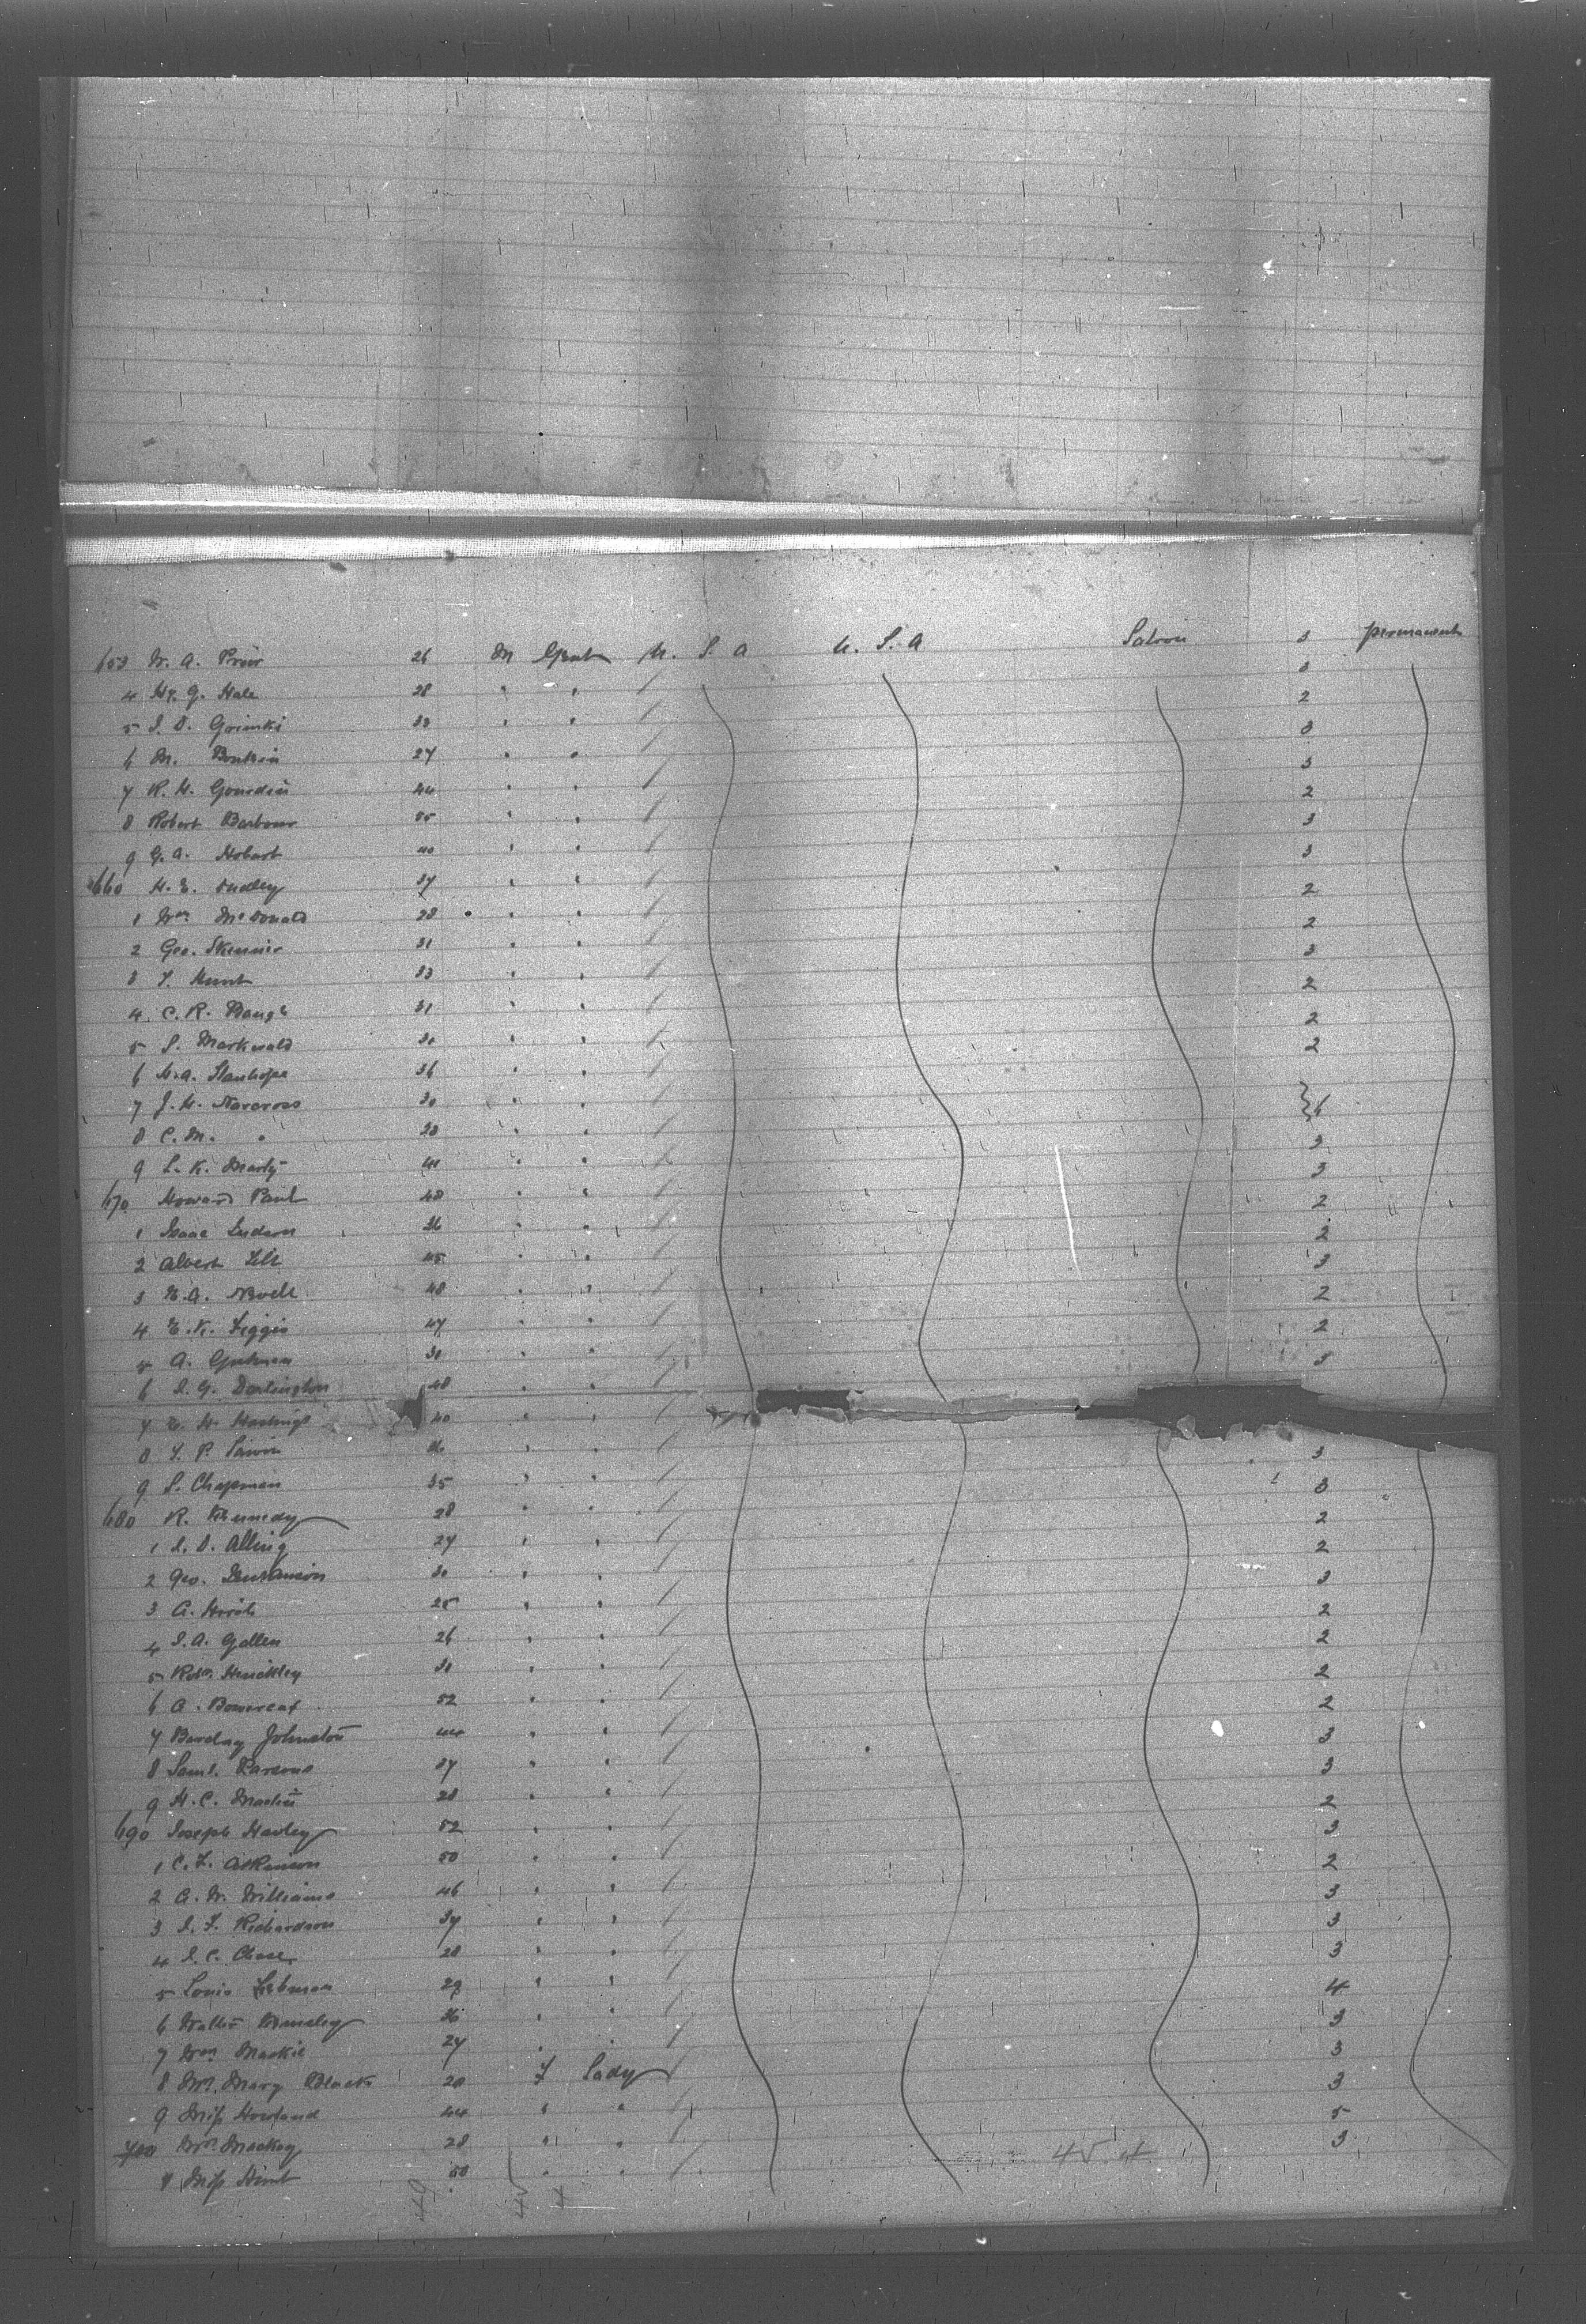 653 W. A. Prior 26 M Gent U. S. A U. S. A Saloon 3 permanent
4 Wr. G. Hale 28 " " 3
5 S. D. Grimké 33 " " 2
6 M. 27 " " 3
7 R. H. Gourdin 44 " " 3
8 Robert Barbour 55 " " 2
9 G. A. Hobart 40 " " 3
660 H. E. Dudley 37 " " 3
1 Wm McDonald 28 " " 2
2 Geo. Skinner 31 " " 2
3 T. Hunt 33 " " 3
4 C. R. Baugh 31 " " 2
5 S. Markwald " " 2
6 H. A. Stanhope 36 " " 2
7 J. H. Norcross 30 " " } 6
8 C. M. " 28 " "
9 L. K. Marty 41 " " 3
670 Howard Paul 48 " " 3
1 Isaac 26 " " 2
2 Albert 45 " " 2
3 E. A. 48 " " 3
4 E. K. 47 " " 2
5 A. Gutman 31 " " 2
6 S. G. Darlington 48 " " 5
7 E. H. Hastings 40 " "
8 T. P. 26 " " 3
9 S. Chapman 35 " " 3
680 R. Kennedy 28 " " 2
1 S. D. Alling 27 " " 2
2 Geo. 30 " " 3
3 A. Hirsh 25 " " 2
4 S. A. Gallen 26 " " 2
5 Robt Hinckley 31 " " 2
6 A. 52 " " 2
7 Barclay Johnston 44 " " 3
8 Saml. Parsons 37 " " 3
9 H. C. Martin 28 " " 2
690 Joseph Harley 52 " " 3
1 C. F. Atkinson 50 " " 2
2 A. W. Williams 46 " " 3
3 S. F. Richardson 37 " " 3
4 S. C. Chase 28 " " 3
5 Louis Liebman 29 " " 4
6 Walter 36 " " 3
7 Wm Mackie 27 " " 3
8 Mrs. Mary Black 20 F Lady 3
9 Miss Howland 44 " " 5
700 Mrs. Mackay 28 " " 3
1 Miss Hunt 50 " "